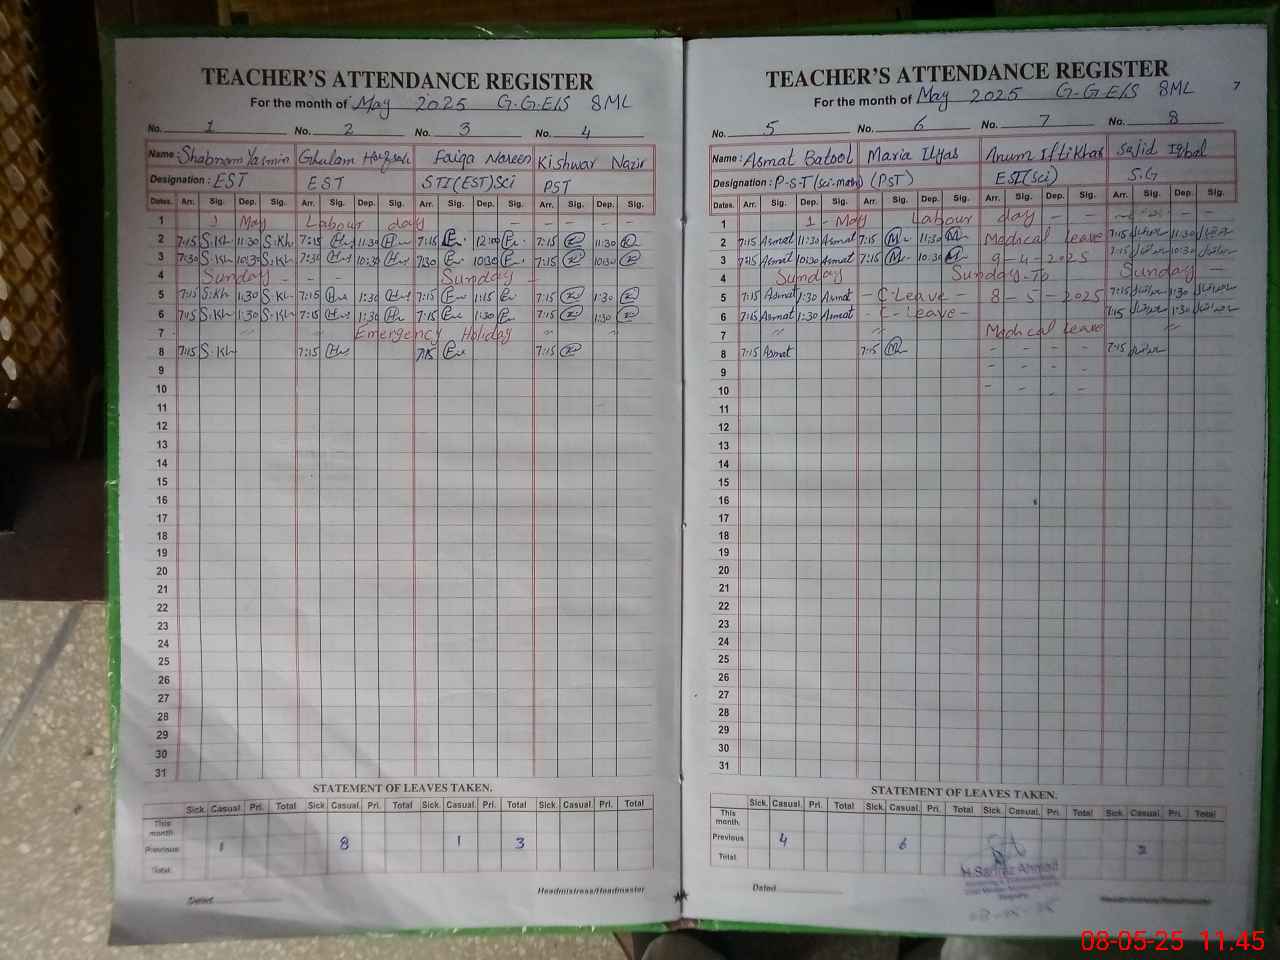 TEACHER'S ATTENDANCE REGISTER
For the month of May 2025 G.G.E/S 8ML
No. 1 No. 2 No. 3 No. 4
Name: Shabnam Yasmin Ghulam Faiqa Nareen Kishwar Nazir
Designation: EST EST STI(EST)Sci PST
Dates. Arr. Sig. Dep. Sig. Arr. Sig. Dep. Sig. Arr. Sig. Dep. Sig. Arr. Sig. Dep. Sig.
1 1 May Labour day - - - - -
2 7:15 S.Kh 11:30 S.Kh 7:15 11:30 7:15 12:00 7:15 11:30
3 7:30 S.Kh 10:30 S.Kh 7:30 10:30 7:30 10:30 7:15 10:30
4 Sunday - - - Sunday -
5 7:15 S.Kh 1:30 S.Kh 7:15 1:30 7:15 1:15 7:15 1:30
6 7:15 S.Kh 1:30 S.Kh 7:15 1:30 7:15 1:30 7:15 1:30
7 " " Emergency Holiday " "
8 7:15 S.Kh 7:15 7:15 7:15
9
10
11
12
13
14
15
16
17
18
19
20
21
22
23
24
25
26
27
28
29
30
31
STATEMENT OF LEAVES TAKEN.
Sick. Casual. Pri. Total Sick. Casual. Pri. Total Sick. Casual. Pri. Total Sick. Casual. Pri. Total
This month.
Previous 1 8 1 3
Total.
Headmistress/Headmaster
Dated
TEACHER'S ATTENDANCE REGISTER
For the month of May 2025 G-G.E/S 8ML 7
No. 5 No. 6 No. 7 No. 8
Name: Asmat Batool Maria Ilyas Anum Iftikhar Sajid Iqbal
Designation: P-S-T (sci-math) (PST) EST(sci) S.G
Dates. Arr. Sig. Dep. Sig. Arr. Sig. Dep. Sig. Arr. Sig. Dep. Sig. Arr. Sig. Dep. Sig.
1 1 - May Labour day - -
2 7:15 Asmat 11:30 Asmat 7:15 11:30 Medical Leave 7:15 11:30
3 7:15 Asmat 10:30 Asmat 7:15 10:30 9-4-2025 7:15 10:30
4 Sunday Sunday -To Sunday -
5 7:15 Asmat 1:30 Asmat - C-Leave - 8-5-2025 7:15 1:30
6 7:15 Asmat 1:30 Asmat - C-Leave - 7:15 1:30
7 " " Medical Leave "
8 7:15 Asmat 7:15 - - - - 7:15
9 - - - -
10 - - - -
11
12
13
14
15
16
17
18
19
20
21
22
23
24
25
26
27
28
29
30
31
STATEMENT OF LEAVES TAKEN.
Sick. Casual. Pri. Total Sick. Casual. Pri. Total Sick. Casual. Pri. Total Sick. Casual. Pri. Total
This month.
Previous 4 6 2
Total.
Dated
Headmistress/Headmaster
08-05-25 11:45